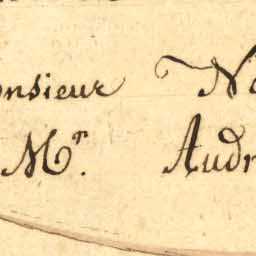 onsieur No
Mr. Audr